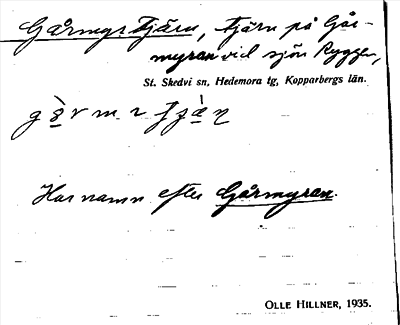 Gårmyrtjärn, tjärn på Går-
myran vid sjön Ryggen,
St. Skedvi sn, Hedemora tg, Kopparbergs län.
Har namn efter Gårmyran.
OLLE HILLNER, 1935.